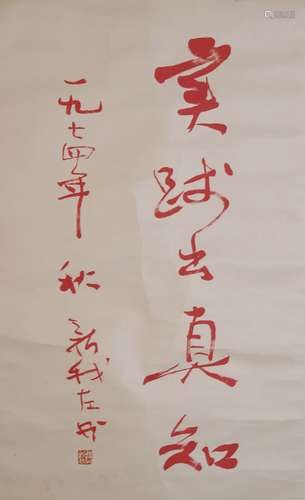 实践出真知
一九七四年秋 新我左笔